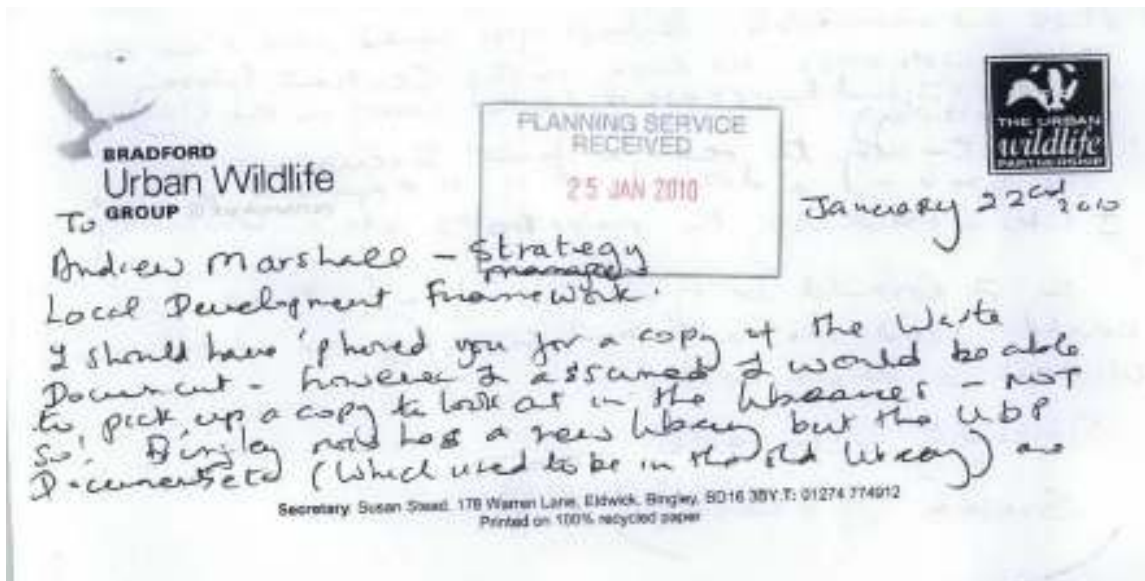 BRADFORD
Urban Wildlife
GROUP
PLANNING SERVICE
RECEIVED
25 JAN 2010
THE URBAN
wildlife
PARTNERSHIP
January 22nd 2010
To
Andrew Marshall - Strategy
manager
Local Development Framework.
I should have 'phoned you for a copy of the Waste
Document - however I assumed I would be able
to pick up a copy to look at in the libraries - NOT
so! Bingley now has a new library but the UDP
Documents etc (which used to be in the old library) are
Secretary: Susan Stead, 178 Warren Lane, Eldwick, Bingley, BD16 3BY. T: 01274 774912
Printed on 100% recycled paper